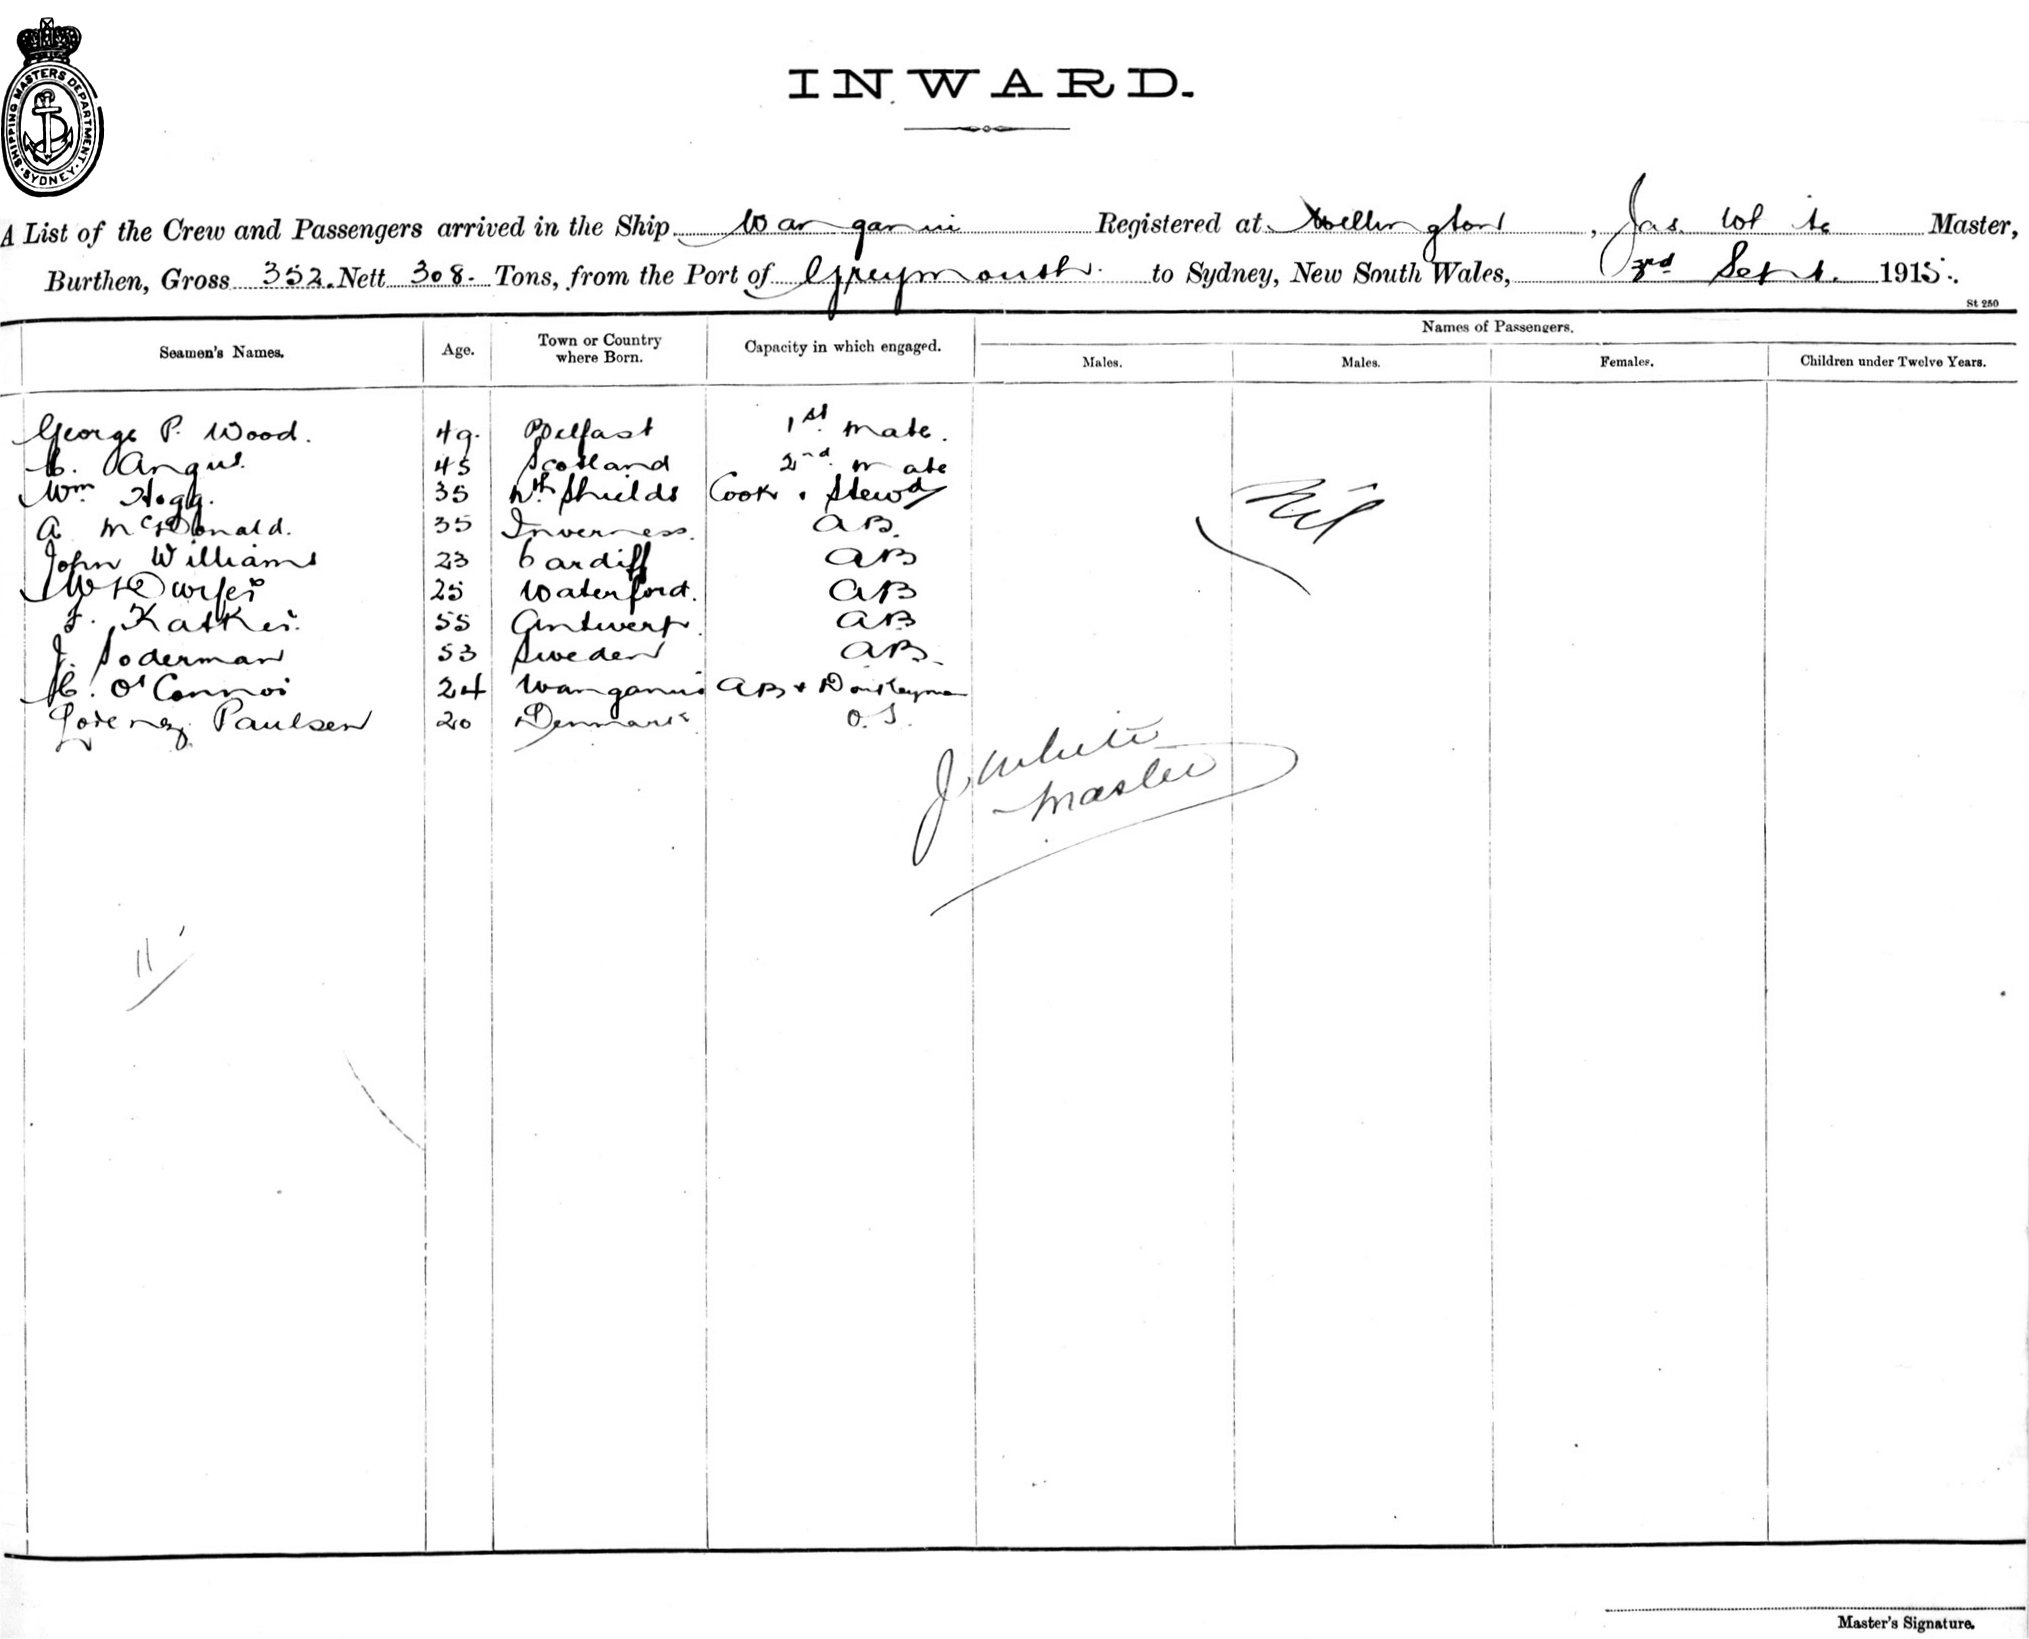 SHIPPING MASTERS DEPARTMENT. SYDNEY.
INWARD.
A List of the Crew and Passengers arrived in the Ship Wanganui Registered at Wellington, Jas. White Master,
Burthen, Gross 352. Nett 308. Tons, from the Port of Greymouth. to Sydney, New South Wales, 3rd Sept. 1915.
St 250
Seamen's Names. Age. Town or Country where Born. Capacity in which engaged. Names of Passengers.
Males. Males. Females. Children under Twelve Years.
George P. Wood. 49. Belfast 1st. Mate.
Angus. 45 Scotland 2nd. Mate
Wm Hogg. 35 Nth Shields Cook & Stewd
A McDonald. 35 Inverness. AB.
John Williams 23 Cardiff AB
25 Waterford. AB
F. 55 Antwerp. AB
J. Soderman 53 Sweden AB.
O'Connor 24 Wanganui AB & Donkeyman
Lorenz. Paulsen 20 Denmark O.S.
Nil
J. White
Master
11
Master's Signature.